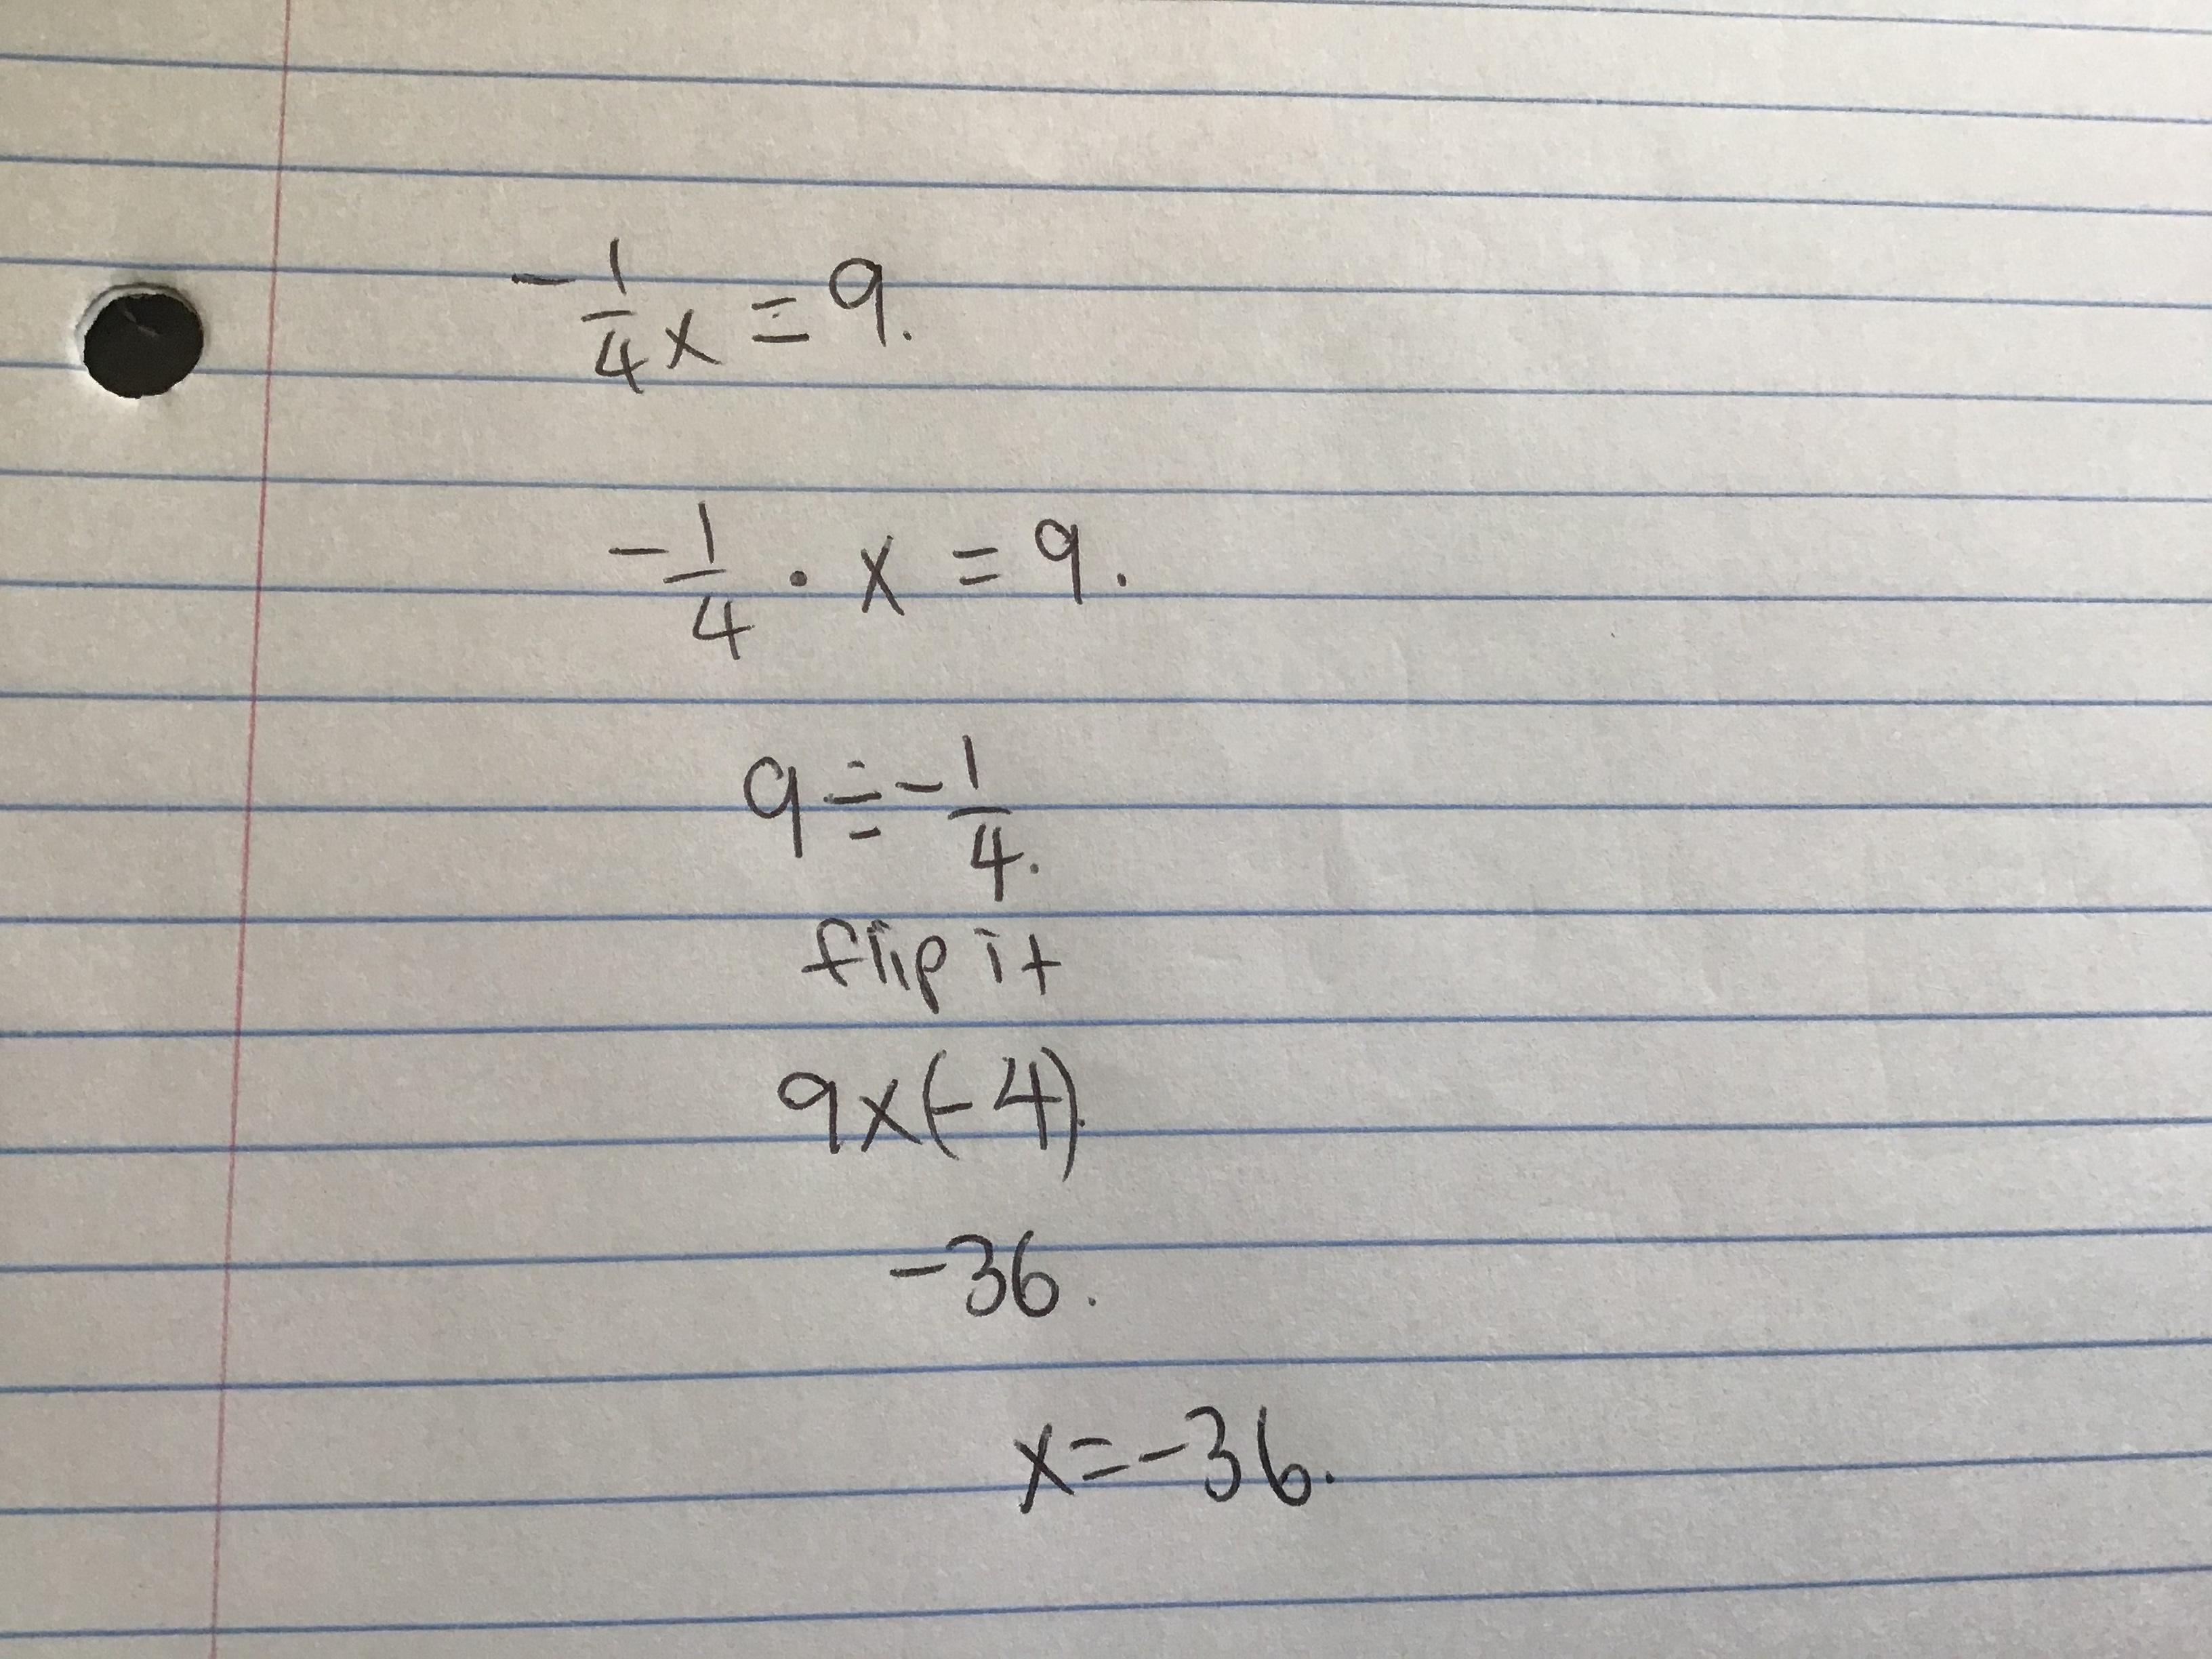 -1/4 x = 9.
-1/4 · x = 9.
9 ÷ -1/4.
flip it
9x(-4).
-36.
x=-36.